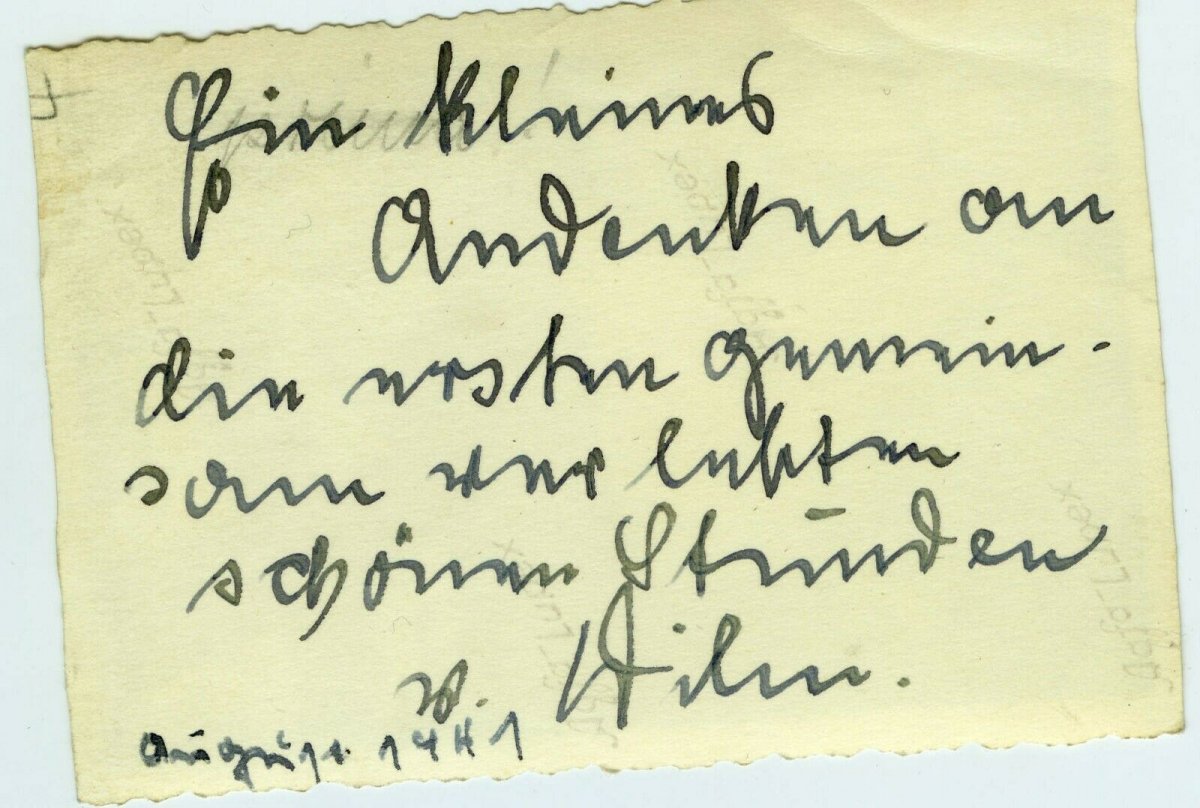 Ein kleines
Andenken an
die ersten gemein-
sam verlebten
schönen Stunden
v.
August 1941